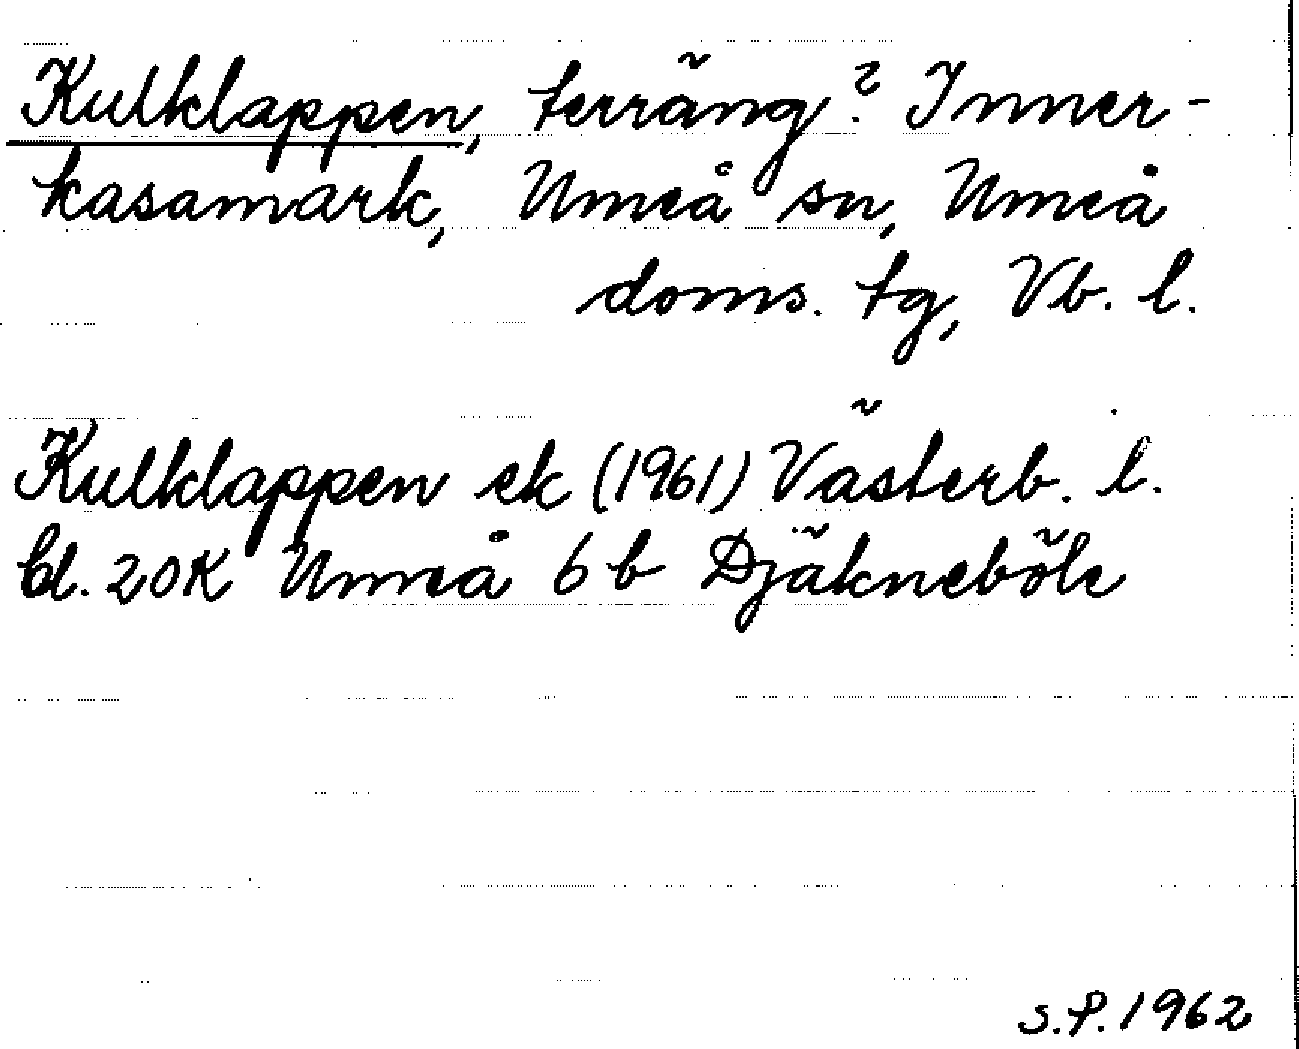 Kulklappen, terräng? Inner-
kasamark, Umeå sn, Umeå
doms. tg, Vb. l.
Kulklappen ek (1961) Västerb. l.
bl. 20K Umeå 6 b Djäkneböle
S.P. 1962